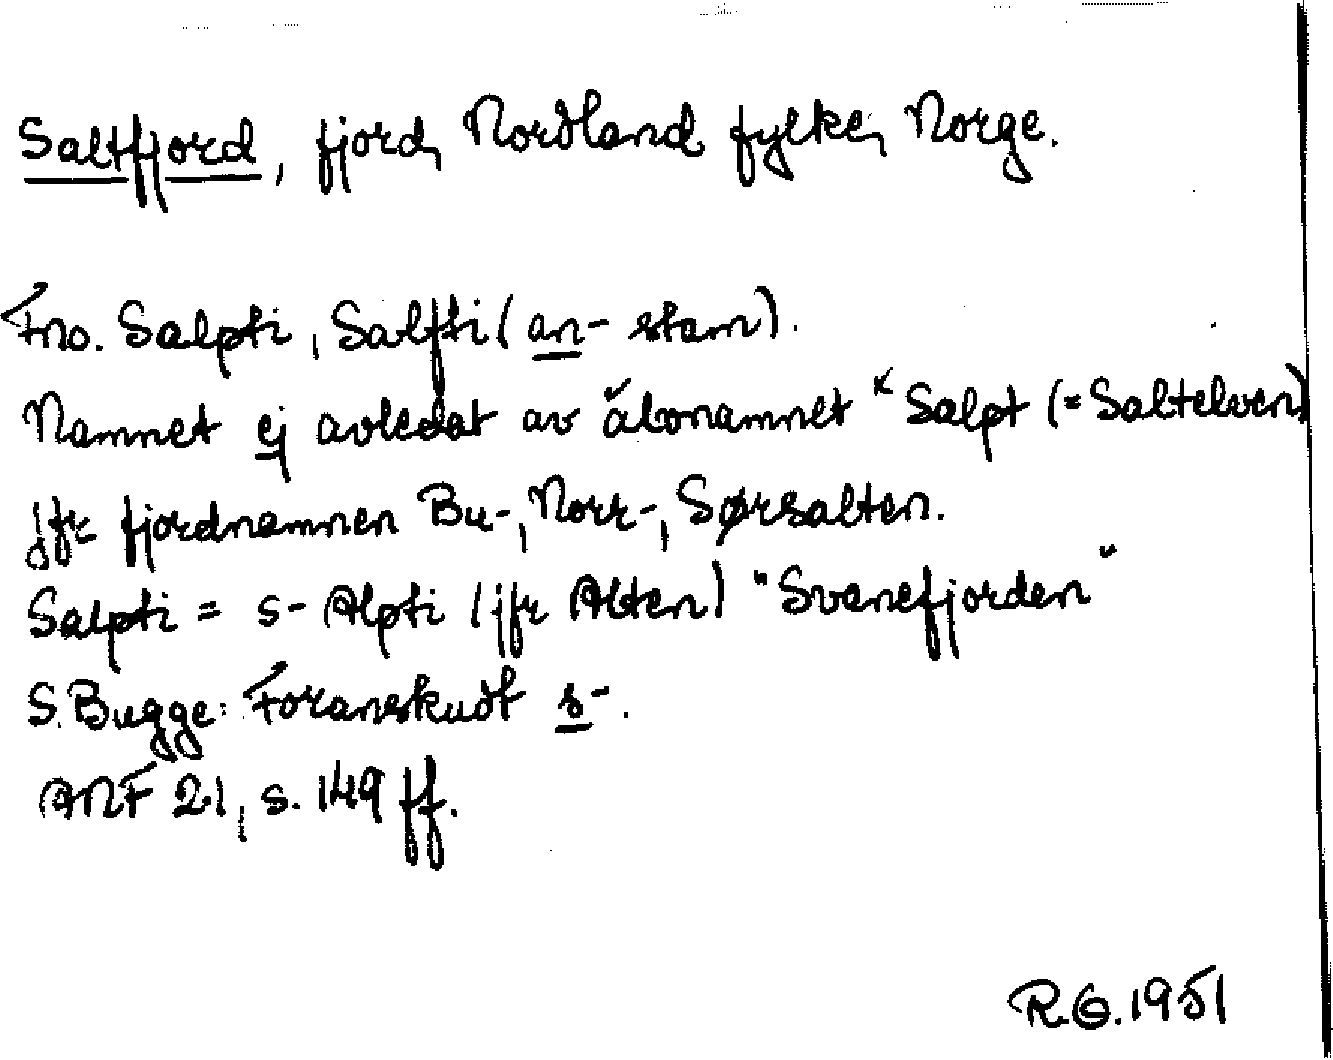 Saltfjord, fjord, Nordland fylke, Norge.
Fno. Salpti, Salfti (an- stam).
Namnet ej avledat av älvnamnet *Salpt (= Saltelven)
jfr fjordnamnen Bu-, Norr-, Sørsalten.
Salpti = s- Alpti (jfr Alten) "Svanefjorden"
S. Bugge: Foranskudt s-.
ANF 21, s. 149 ff.
R.G. 1951